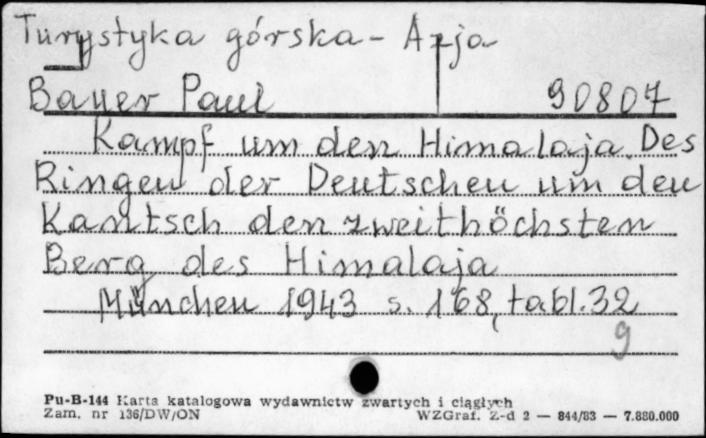 Turystyka górska - Azja
Bauer Paul 90807
Kampf um den Himalaja. Des
Ringen der Deutschen um den
Kantsch den zweithöchsten
Berg des Himalaja
München 1943 s. 168, tabl. 32
9
Pu-B-144 Karta katalogowa wydawnictw zwartych i ciągłych
Zam. nr 136/DW/ON WZGraf. Z-d 2 — 844/83 — 7.880.000